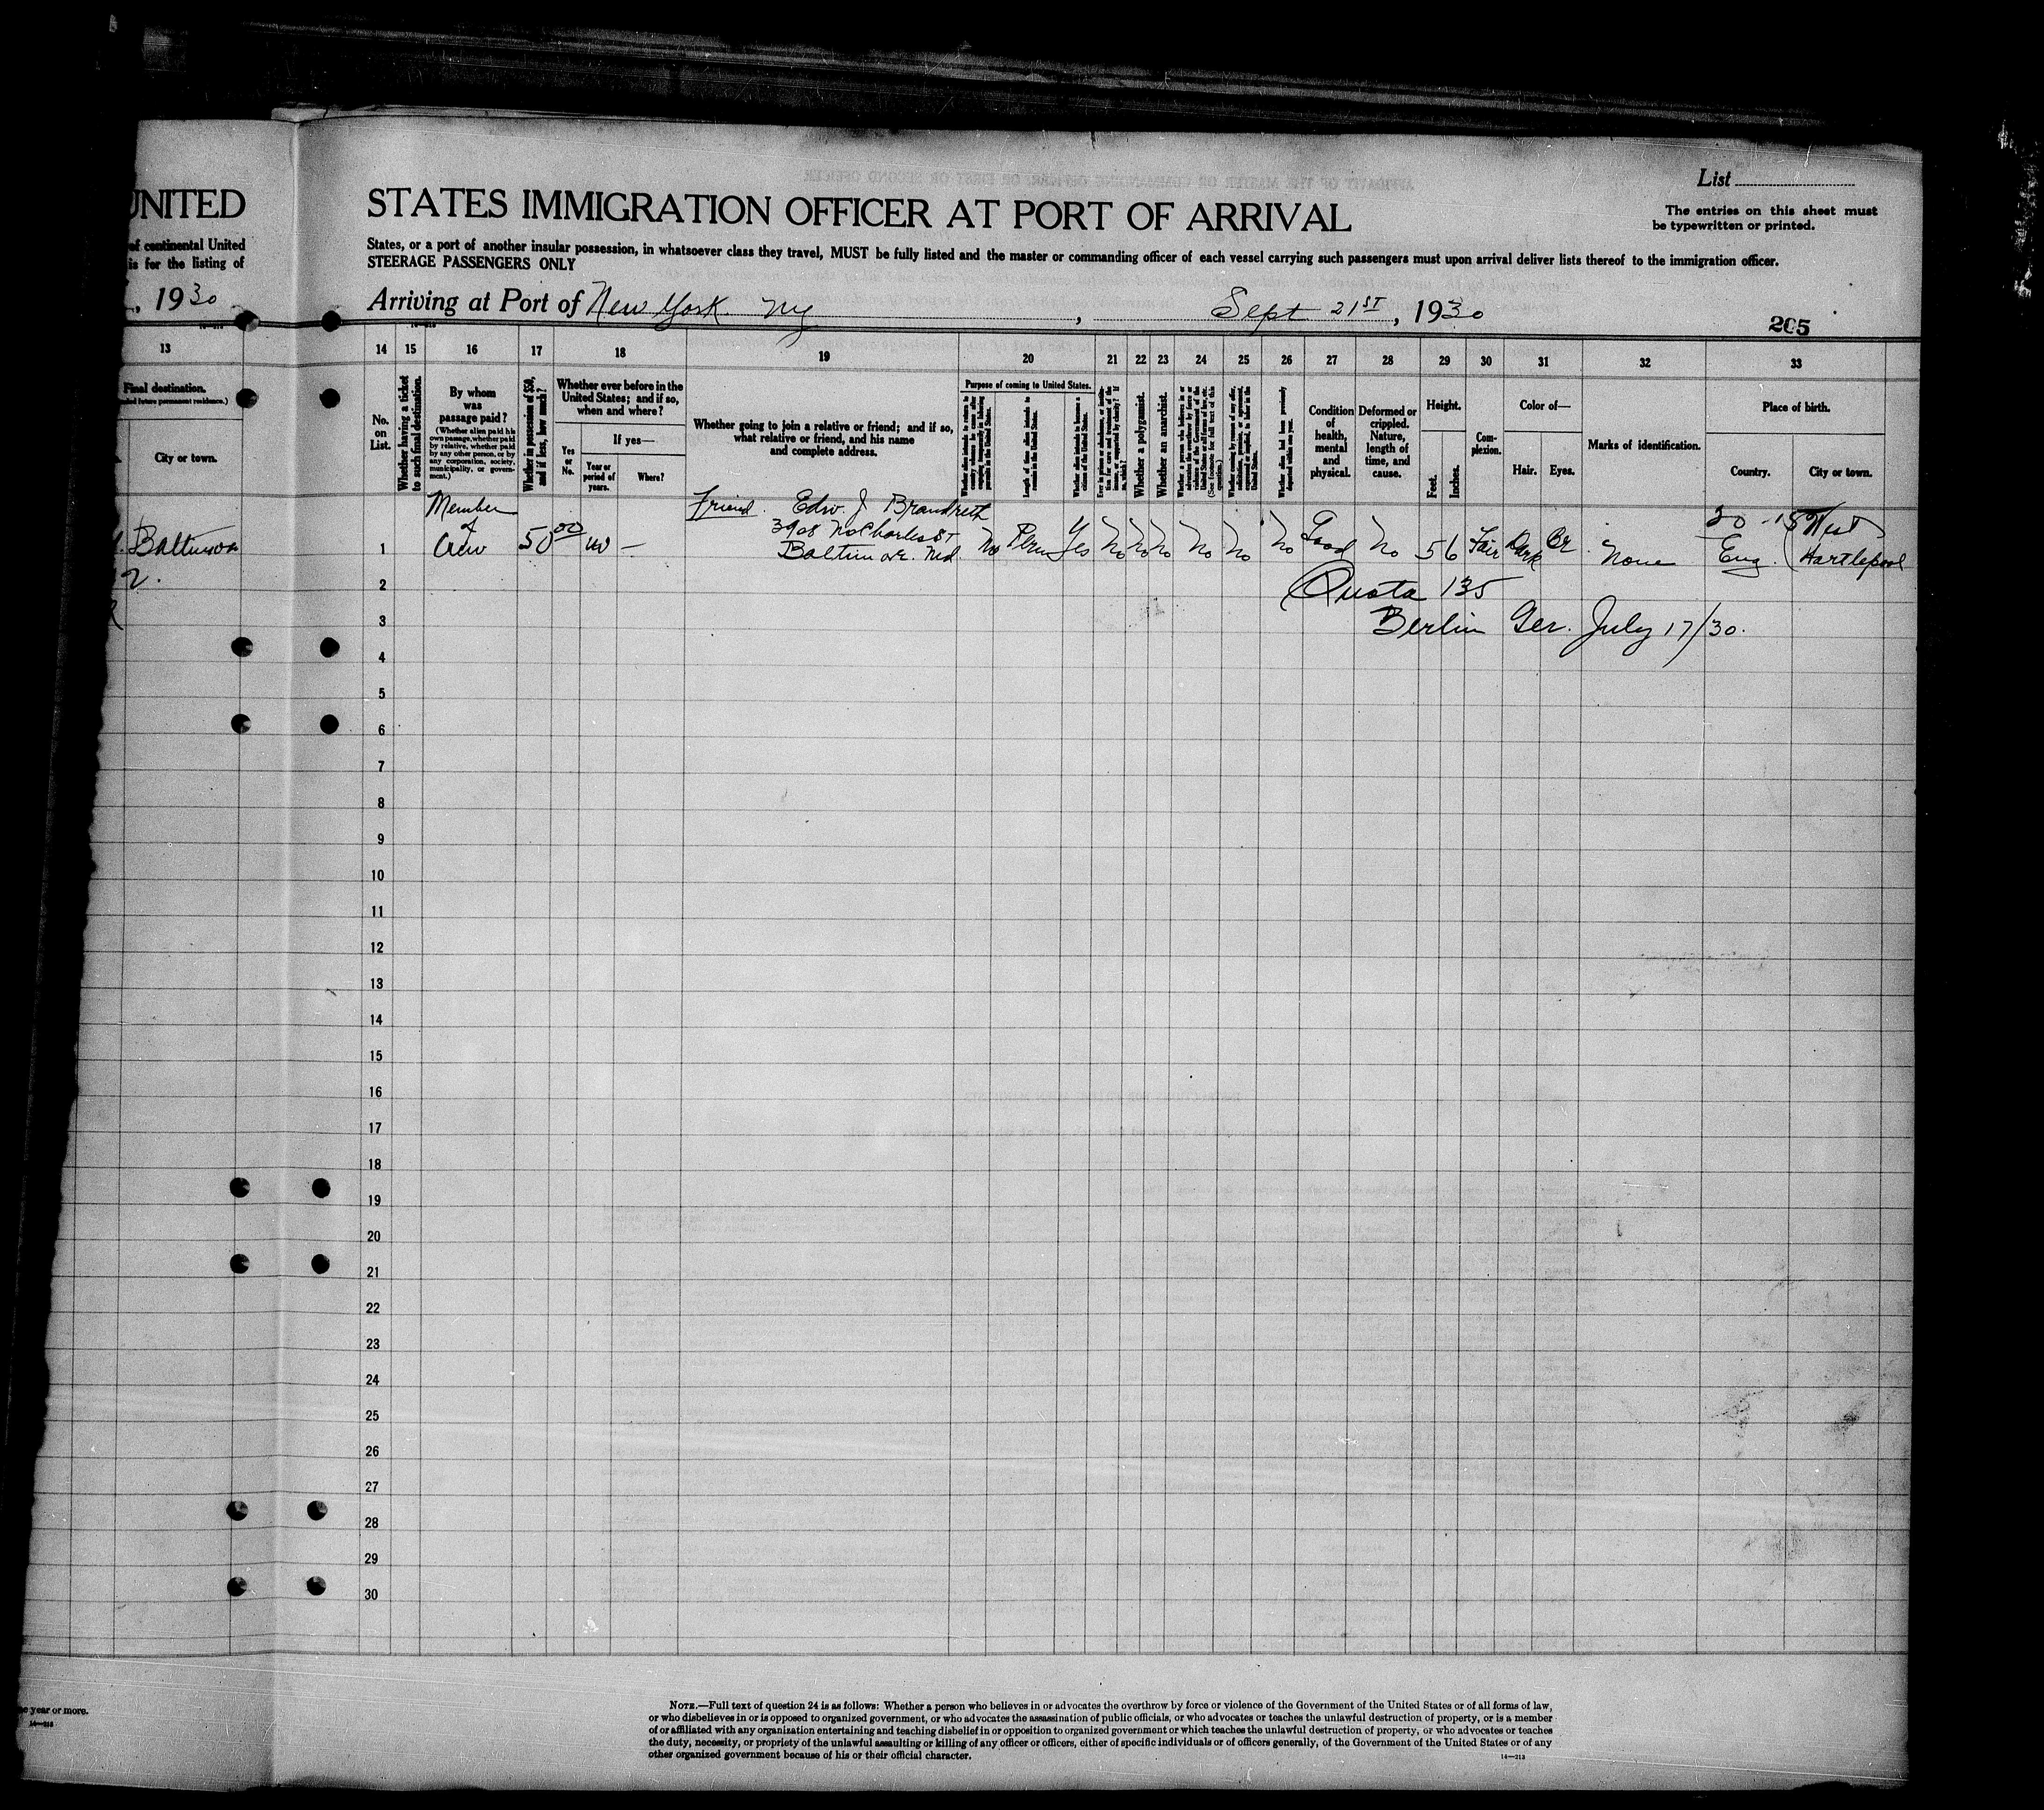 List
The entries on this sheet must
be typewritten or printed.
UNITED STATES IMMIGRATION OFFICER AT PORT OF ARRIVAL
of continental United States, or a port of another insular possession, in whatsoever class they travel, MUST be fully listed and the master or commanding officer of each vessel carrying such passengers must upon arrival deliver lists thereof to the immigration officer.
is for the listing of STEERAGE PASSENGERS ONLY
, 1930 Arriving at Port of New York Ny , Sept 21ST, 1930
205
13 14 15 16 17 18 19 20 21 22 23 24 25 26 27 28 29 30 31 32 33
Final destination.
City or town.
No.
on
List.
Whether having a ticket
to such final destination.
By whom
was
passage paid?
(Whether alien paid his
own passage, whether paid
by relative, whether paid
by any other person, or by
any corporation, society,
municipality, or govern-
ment.)
Whether in possession of $50,
and if less, how much?
Whether ever before in the
United States; and if so,
when and where?
Yes
or
No.
If yes—
Year or
period of
years.
Where?
Whether going to join a relative or friend; and if so,
what relative or friend, and his name
and complete address.
Purpose of coming to United States.
Length of time alien intends to
remain in the United States.
Whether alien intends to become a
citizen of the United States.
Whether a polygamist.
Whether an anarchist.
Whether alien had been previously
deported within one year.
Condition
of
health,
mental
and
physical.
Deformed or
crippled.
Nature,
length of
time, and
cause.
Height.
Feet.
Inches.
Com-
plexion.
Color of—
Hair.
Eyes.
Marks of identification.
Place of birth.
Country.
City or town.
Member
of
Crew
Friend Edw. J Brandreth
3908 No Charles St
Baltimore Md
Baltimore
1 50 00 no — No Perm Yes No No No No No No Good No 5 6 Fair Dark Br None Eng. West
Hartlepool
2 Quota 135
3 Berlin Ger. July 17/30.
4
5
6
7
8
9
10
11
12
13
14
15
16
17
18
19
20
21
22
23
24
25
26
27
28
29
30
year or more.
14—213
NOTE.—Full text of question 24 is as follows: Whether a person who believes in or advocates the overthrow by force or violence of the Government of the United States or of all forms of law,
or who disbelieves in or is opposed to organized government, or who advocates the assassination of public officials, or who advocates or teaches the unlawful destruction of property, or is a member
of or affiliated with any organization entertaining and teaching disbelief in or opposition to organized government or which teaches the unlawful destruction of property, or who advocates or teaches
the duty, necessity, or propriety of the unlawful assaulting or killing of any officer or officers, either of specific individuals or of officers generally, of the Government of the United States or of any
other organized government because of his or their official character.
14—213